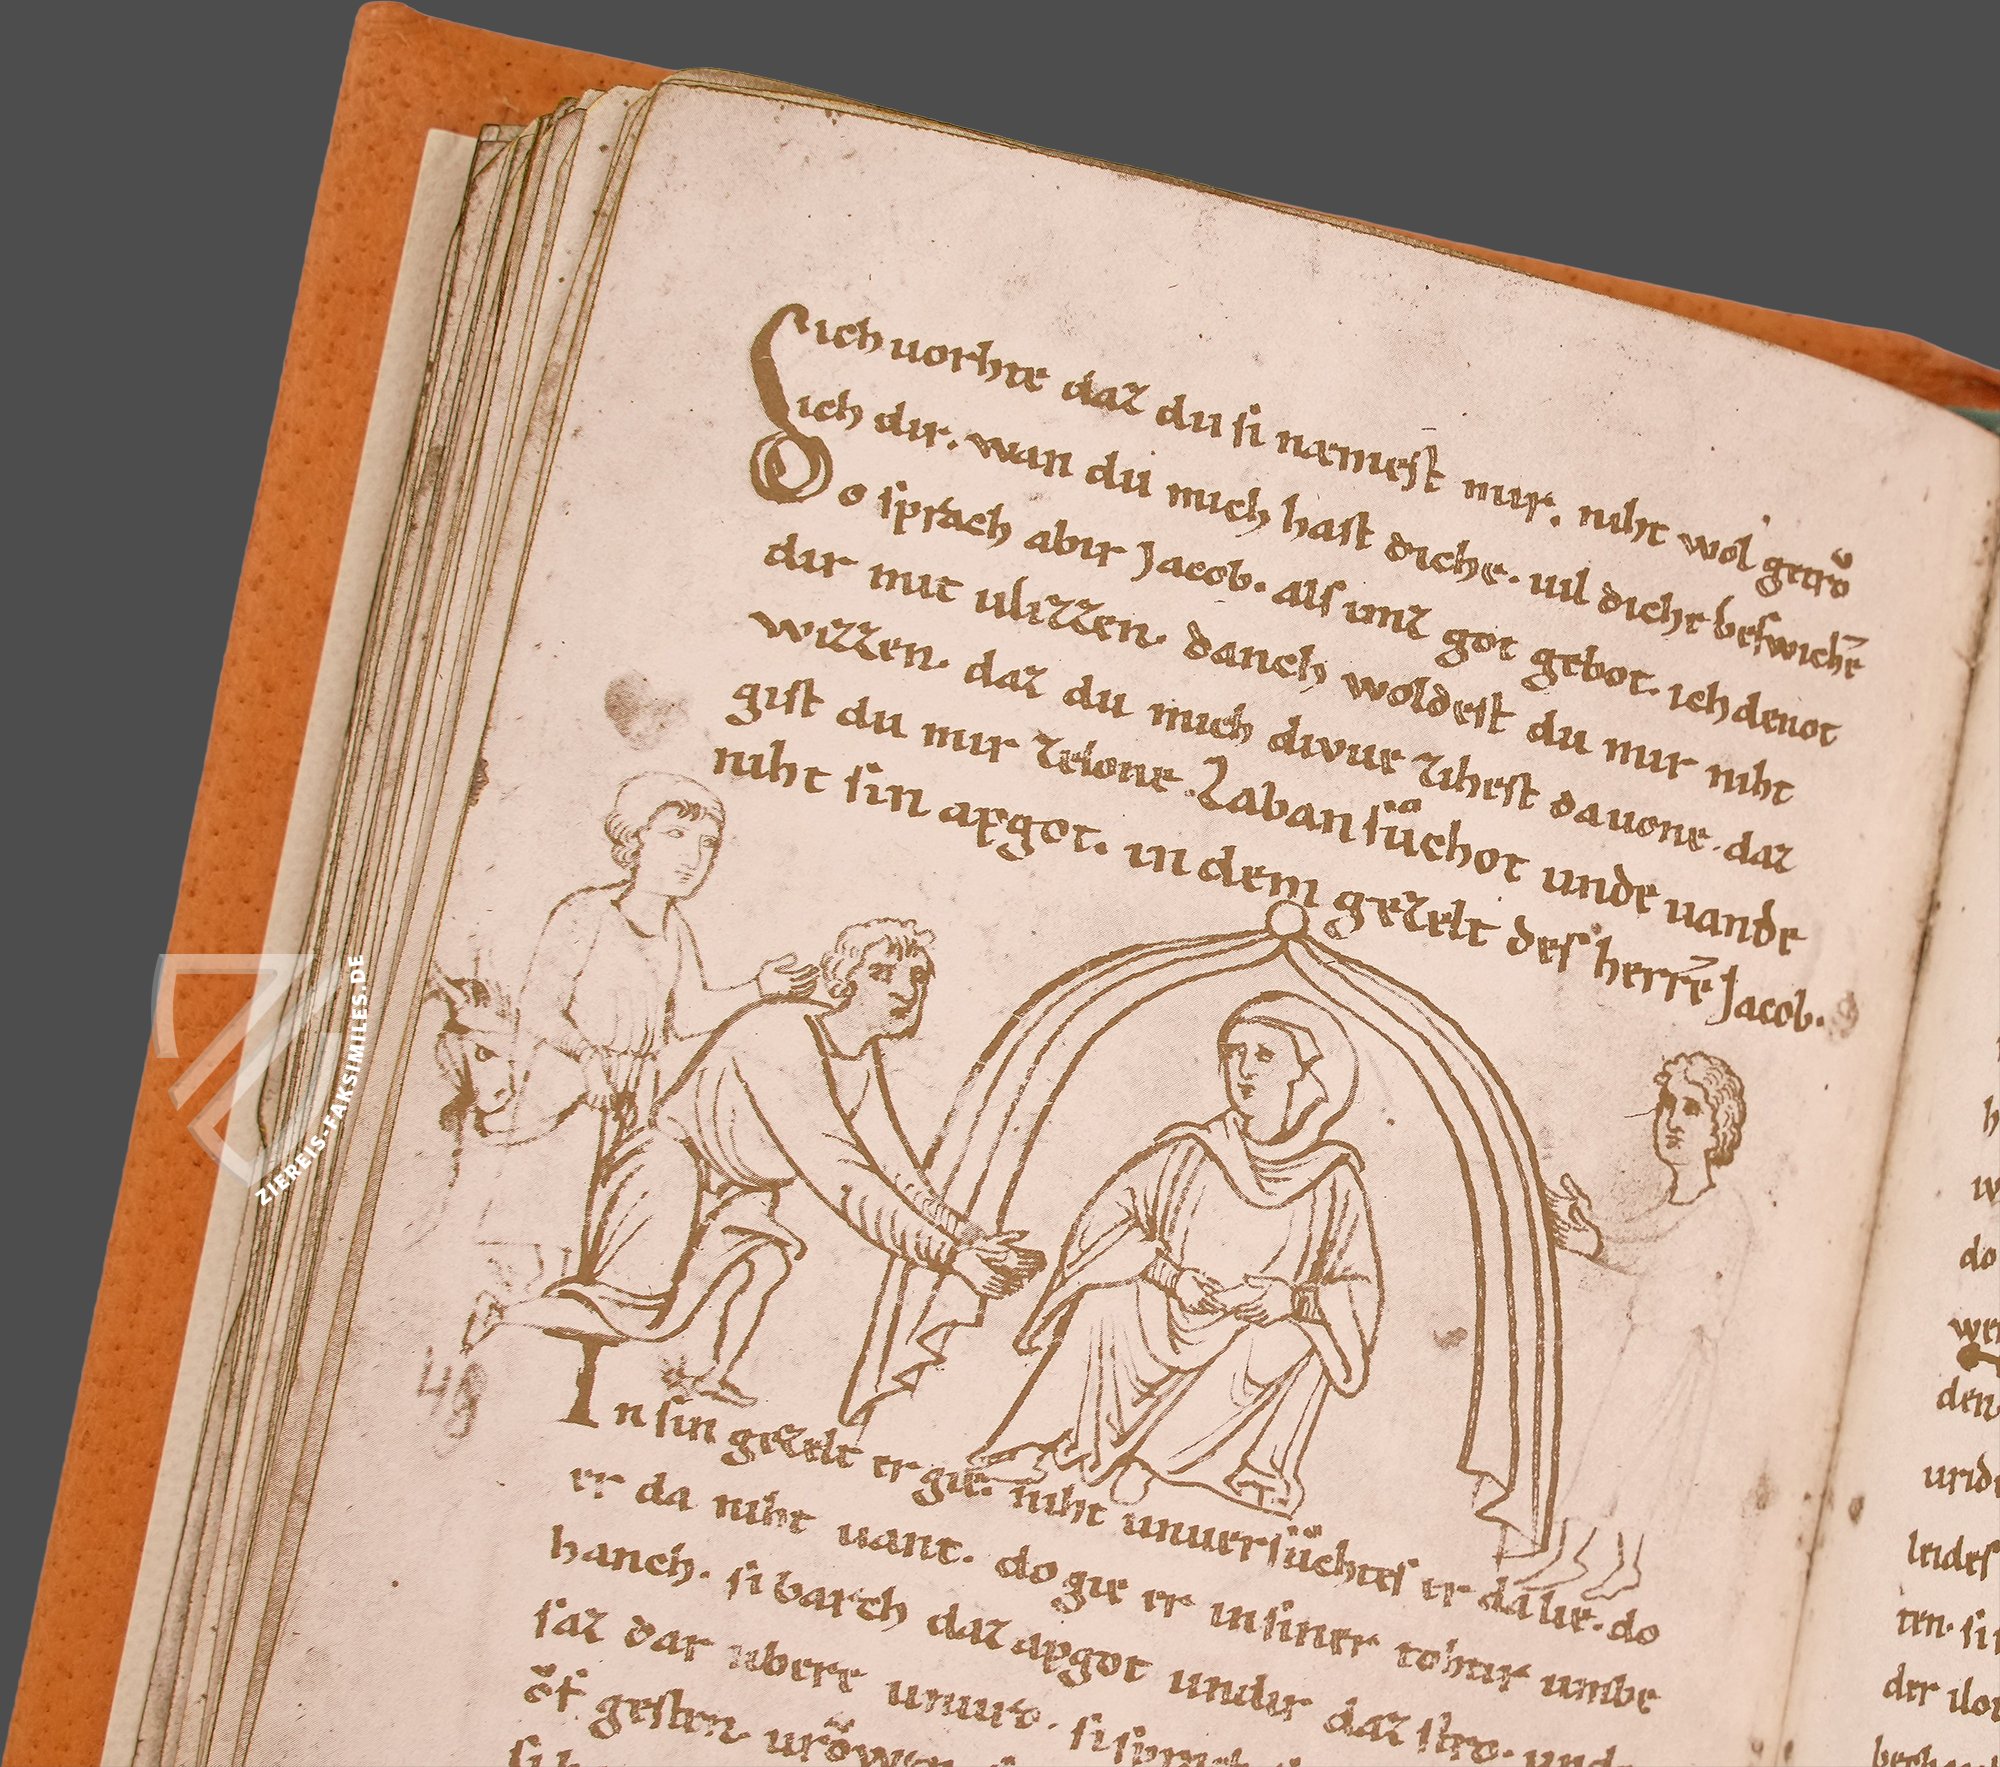 Sich uorhte daz du si næmest mir. niht wol getrỏ
ich dir. wan du mich hast diche. uil dichr beswichē
Do sprach abir Jacob. als imz got gebot. ich denot
dir mit ulizzen. danch woldest du mir niht
wizzen. daz du mich divue zihest dauone. daz
gist du mir zelone. Laban sůchot unde uande
niht sin apgot. in dem gezelt des herrē Jacob.
In sin gezelt er gie. niht unuersůchtes er da lie. do
er da niht uant. do gie er in siner tohtir umbe
hanch. si barch daz apgot undir daz stro. unde
saz dar ubere
ỏf gesten.
si
49
ZIEREIS-FAKSIMILES.DE
do
den
unde
der